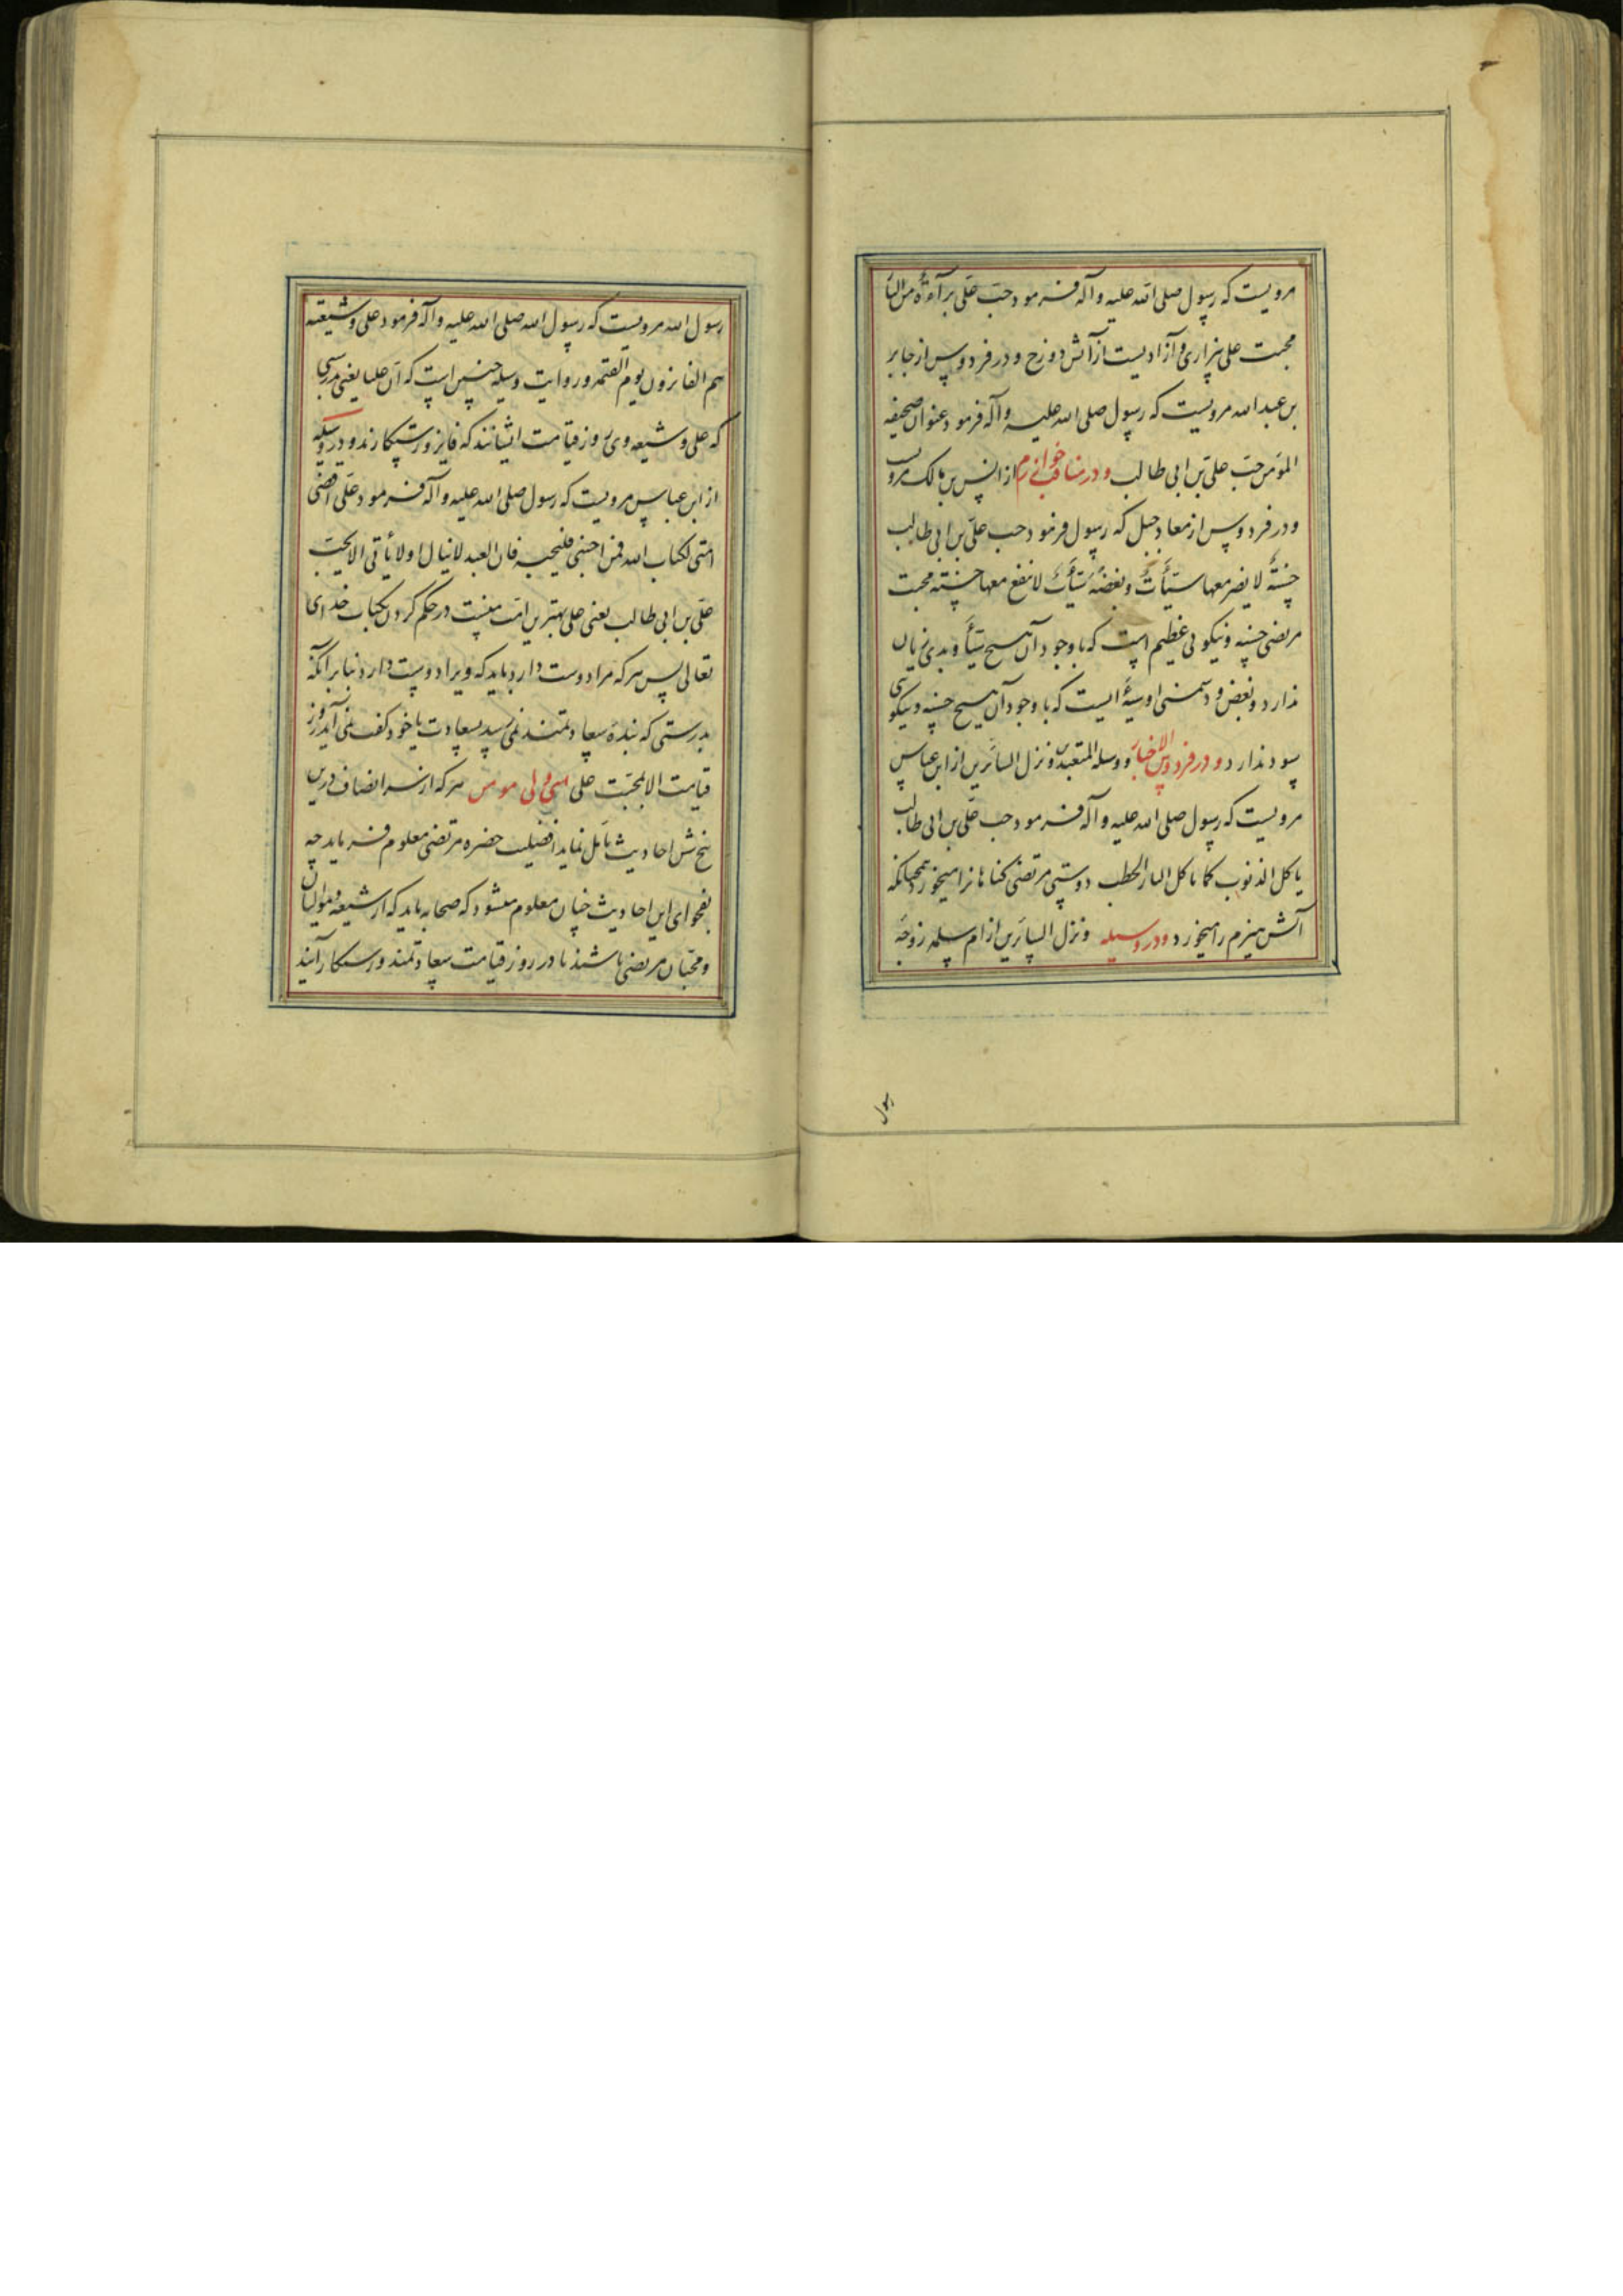 مرویست که رسول صلی الله علیه وآله فرمود حبّ علی برآءةٌ من النار
محبت علی بیزاری و آزادیست از آتش دوزخ و در فردوس از جابر
بن عبد الله مرویست که رسول صلی الله علیه وآله فرمود عنوان صحیفه
المؤمن حبّ علیّ بن ابی طالب و در مناقب خوارزم از انس بن مالک مرویست
و در فردوس از معاد جبل که رسول فرمود حب علیّ بن ابی طالب
حسنةٌ لا یضر معها سیّأتٌ و بغضهٔ سیّأتٌ لا نفع معها حسنته محبت
مرتضی حسنه و نیکوئی عظیم است که با وجود آن هیچ سیّأ و بدی زیان
ندارد و بغض و دشمنی او سیّهٔ ایست که با وجود آن هیچ حسنه و نیکوئی
سود ندارد و در فردوس الاخبار و وسیله المتعبدین و نزل السائرین از ابن عباس
مرویست که رسول صلی الله علیه وآله فرمود حب علیّ بن ابی طالب
یاکل الذنوب کما یاکل النار الحطب دوستی مرتضی کناهانرا میخورد همچنانکه
آتش هیزم را میخورد و در وسیله و نزل السائرین از ام سلمه زوجهٔ
رسول
رسول الله مرویست که رسول الله صلی الله علیه وآله فرمود علی و شیعته
هم الفایزون یوم القیمه و روایت وسیله چنین است که انّ علیا یعنی بدرستی
که علی و شیعه وی روز قیامت ایشانند که فایز و رستکارند و در وسیله
از ابن عباس مرویست که رسول صلی الله علیه وآله فرمود علی اقضی
امتی لکتاب الله فمن احبنی فلیحبه فان العبد لا ینال اولا یأتی الا بحبّ
علیّ بن ابی طالب یعنی علی بهترین امّت منست در حکم کردن بکتاب خدای
تعالی پس هر که مرا دوست دارد باید که ویرا دوست دارد بنابر آنکه
بدرستی که بندهٔ سعادتمند نمی رسد بسعادت یا خود کفت نمی آید روز
قیامت الا بمحبّت علی هر که از سر انصاف درین
شش احادیث تامل نماید افضلیت حضره مرتضی معلوم فرماید چه
بفحوای این احادیث چنان معلوم میشود که صحابه باید که از شیعه و موالیان
و محبّان مرتضی باشند تا در روز قیامت سعادتمند و رستکار آیند